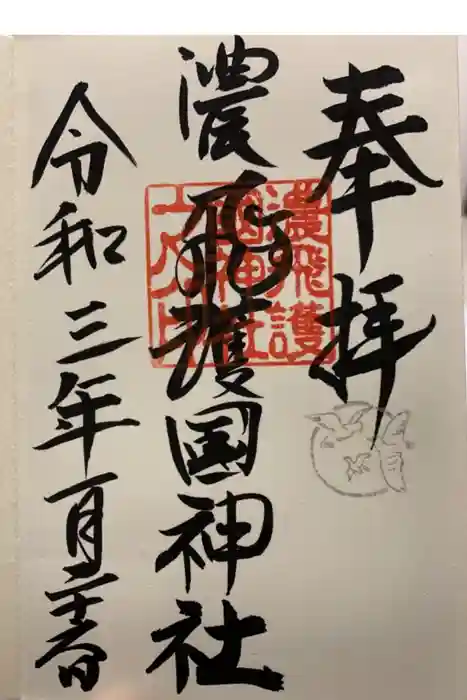 奉拝
濃飛護国神社
令和三年一月
濃飛護
國神社
之印